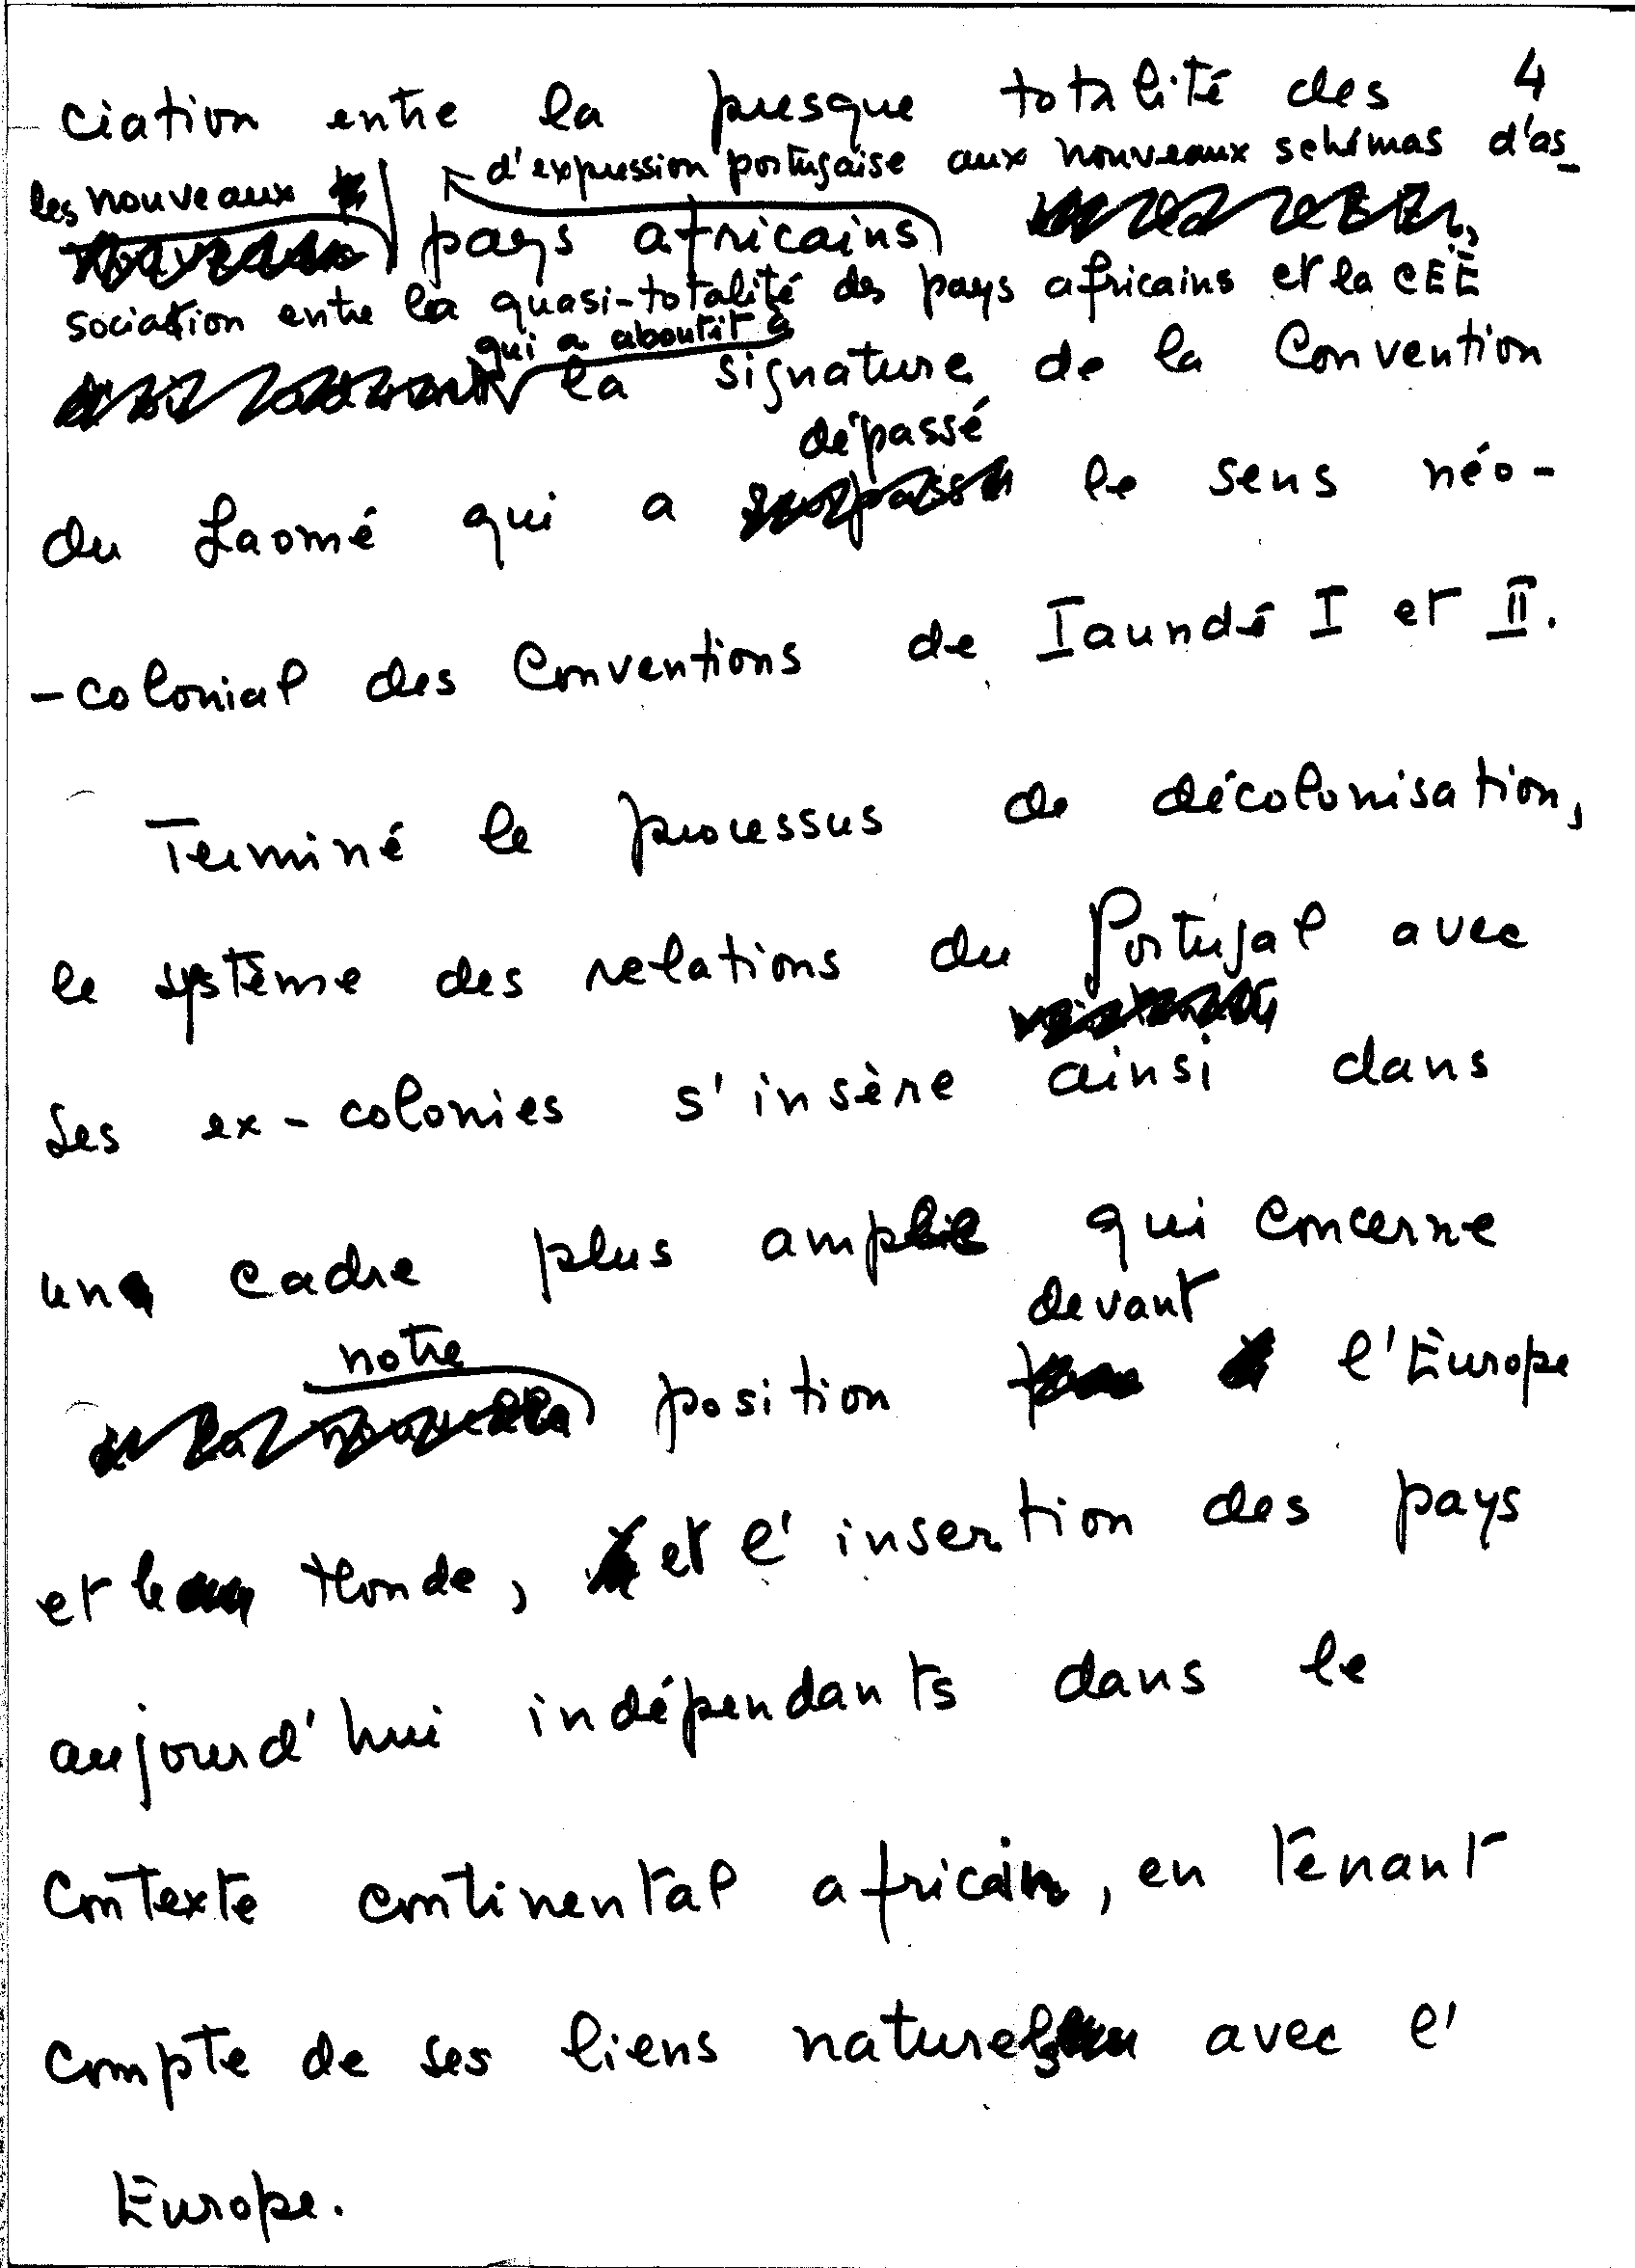 4
ciation entre la presque totalité des
d'expression portugaise aux nouveaux schémas d'as_
les nouveaux
pays africains
sociation entre la quasi-totalité des pays africains et la CEE
qui a aboutit à
la signature de la Convention
dépassé
du Laomé qui a le sens néo-
-colonial des Conventions de Iaundé I et II.
Terminé le processus de décolonisation,
le système des relations du Portugal avec
ses ex-colonies s'insère ainsi dans
un cadre plus ample qui concerne
devant
notre
position l'Europe
et le Monde, et l'insertion des pays
aujourd'hui indépendants dans le
contexte continental africain, en tenant
compte de ses liens naturels avec l'
Europe.